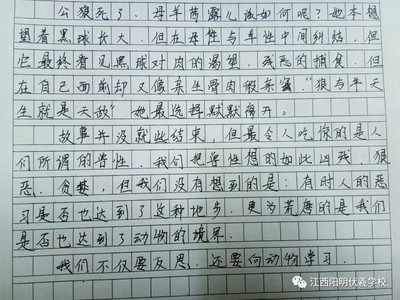 公狼死了，母羊茜露儿该如何呢？她本想
望着黑球长大，但在母性与羊性中间纠结，但
它最终看见黑球对肉的渴望，残忍的捕食，但
在自己面前却又像亲生骨肉般亲蜜，“狼与羊天
生就是天敌”她最选择默默离开。
故事并没就此结束，但最令人吃惊的是人
们所谓的兽性，我们把兽性想的如此凶残，狠
恶，贪婪，但我们没有想到的是：有时人的恶
习是否也达到了这种地步，更为荒唐的是我们
是否也达到了动物的境界
我们不仅要反思，还要向动物学习
江西阳明伏羲学校